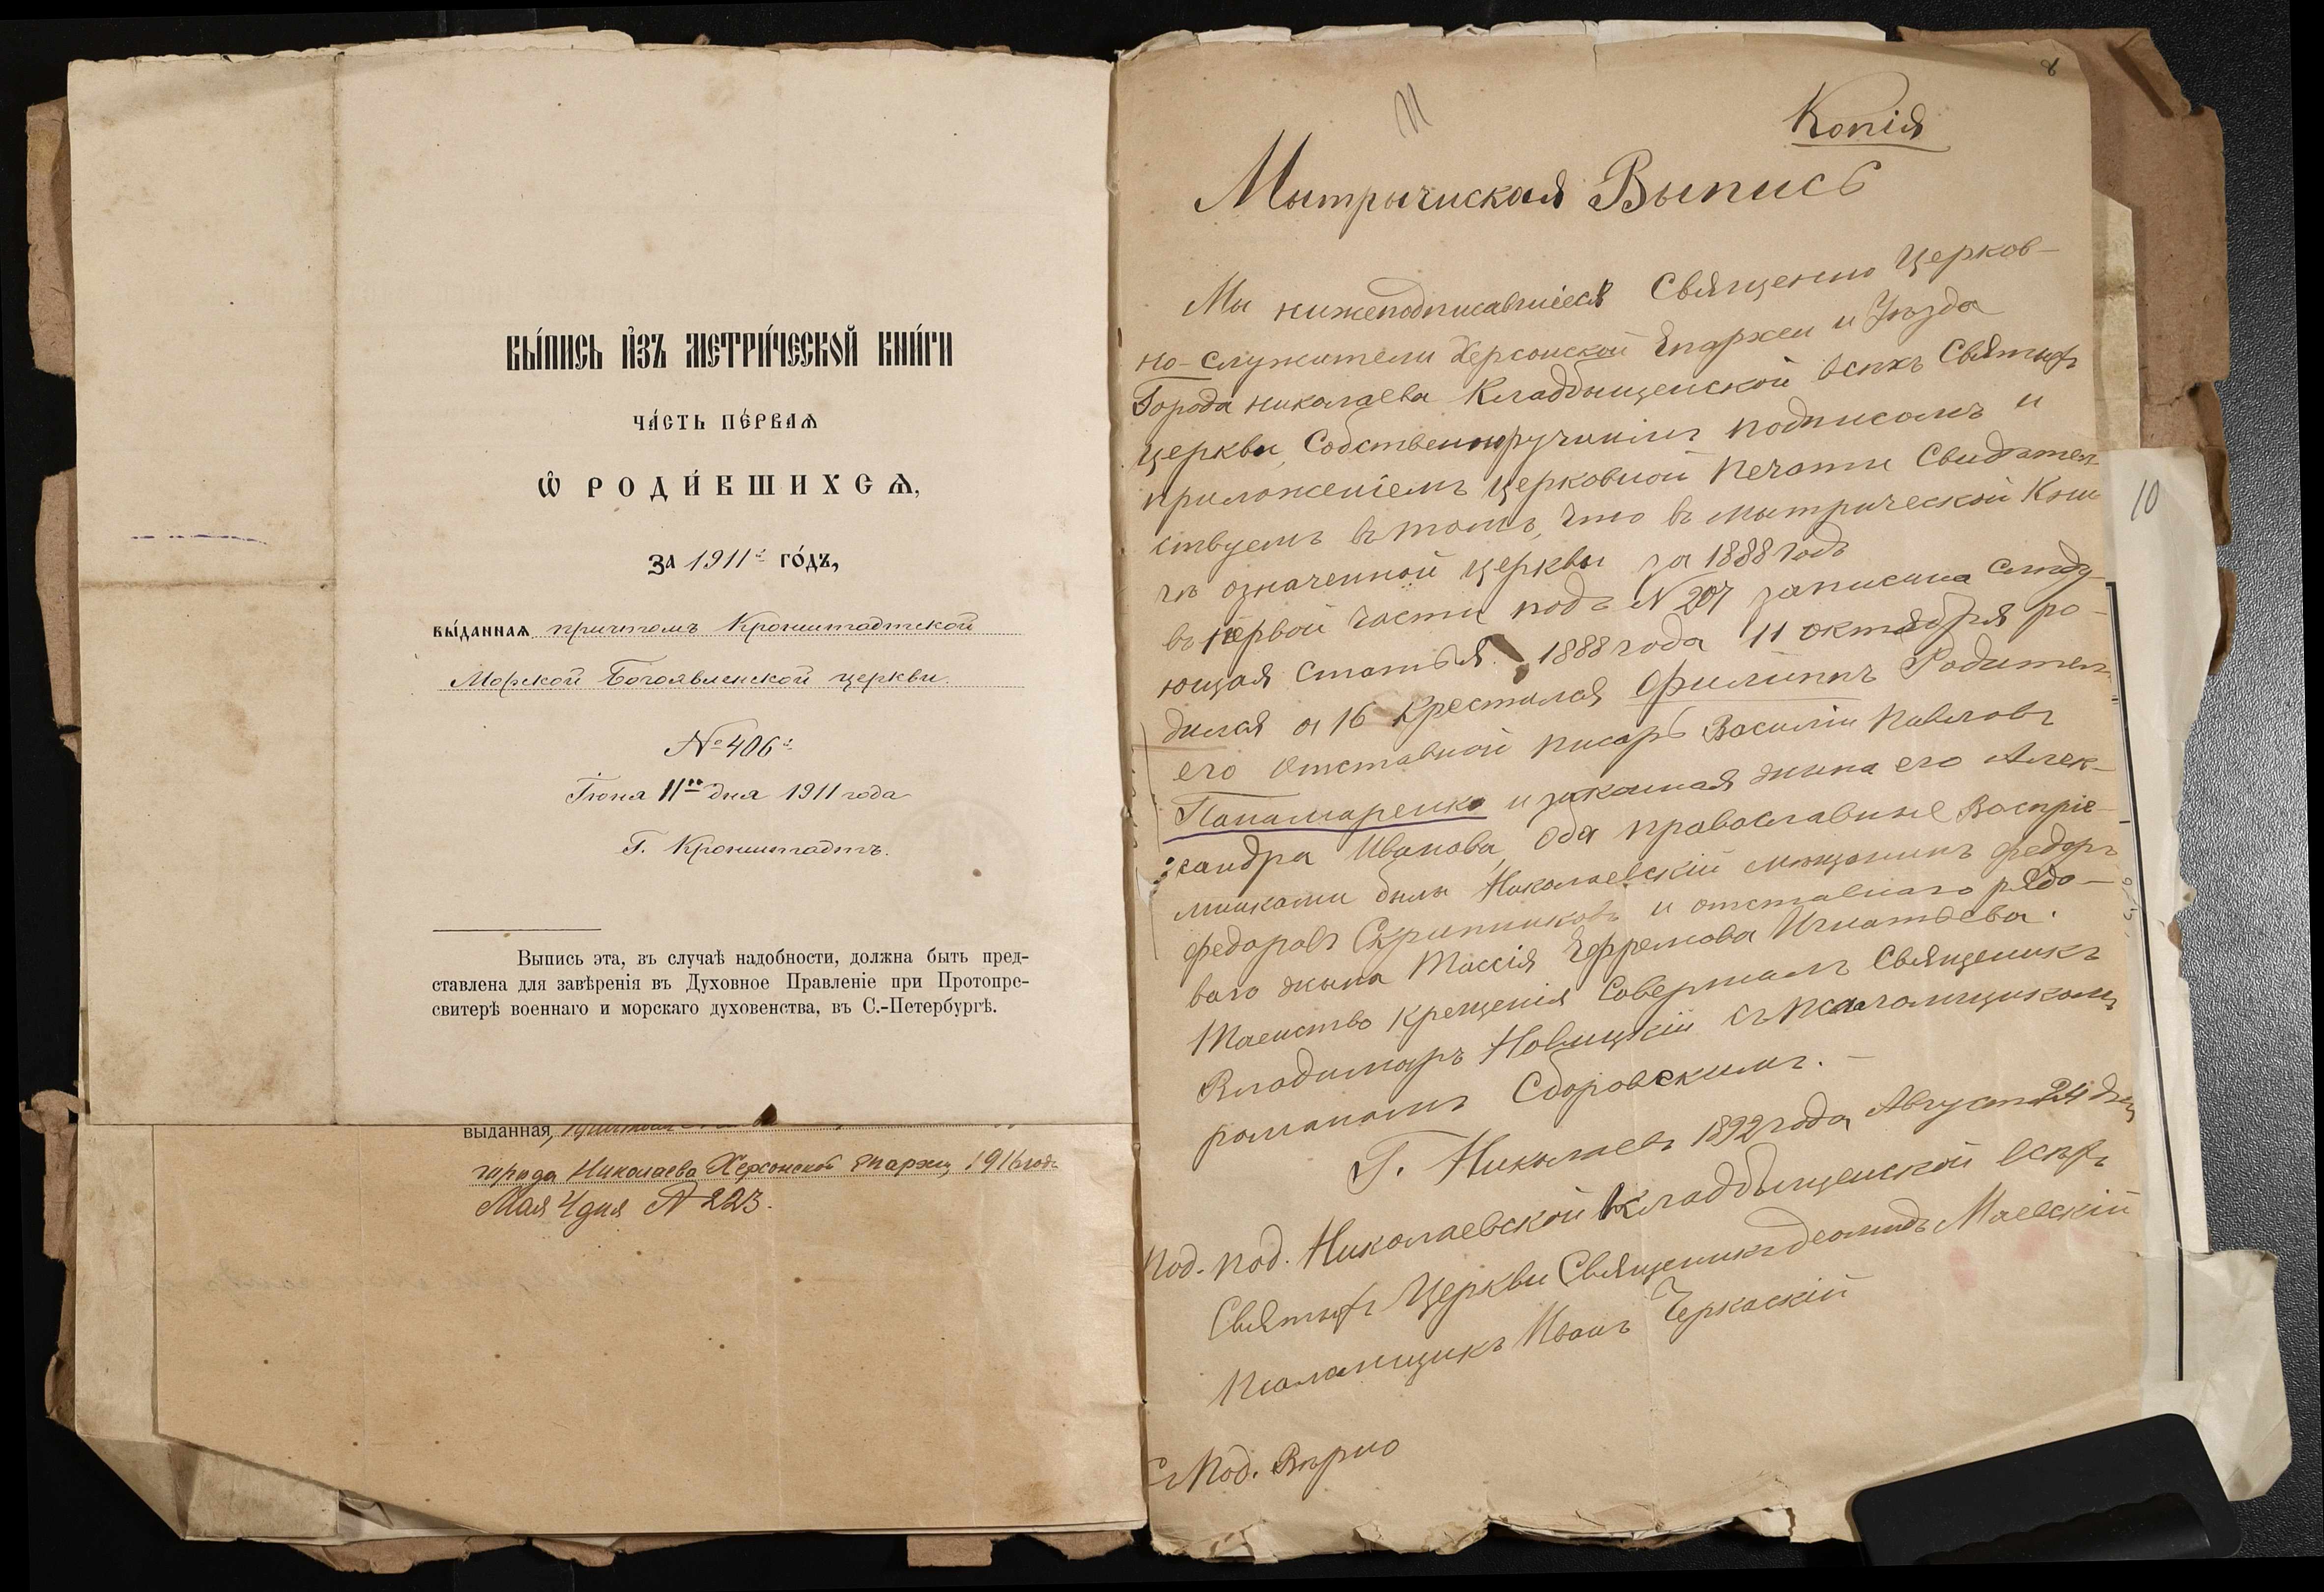 ВЫ́ПИСЬ И҆ЗЪ МЕТРИ́ЧЕСКОЙ КНИ́ГИ
ЧА́СТЬ ПЕ́РВАѦ
Ѡ҆ РОДИ́ВШИХСѦ,
ЗА 1911й ГО́ДЪ,
ВЫ́ДАННАѦ причтомъ Кронштадтской
Морской Богоявленской церкви.
№ 406й
Іюня 11го дня 1911 года
Г. Кронштадтъ.
Выпись эта, въ случаѣ надобности, должна быть пред-
ставлена для завѣренія въ Духовное Правленіе при Протопре-
свитерѣ военнаго и морскаго духовенства, въ С.-Петербургѣ.
выданная,
города Николаева Херсонской епархіи 1916 года
Мая 4 дня № 223.
8
11
Копія
Мытрычиская Выпись
Мы нижеподписавшіеся Священно Церков-
но-служители Херсонской Епархеи и Уѣзда
Города николаева Кладбищенской всѣхъ Святыхъ
церкви, Собственнручнымъ подписомъ и
приложеніемъ церковной печати Свидѣтел-
ствуемъ въ томъ, что въ мытрической Кни
гѣ означенной церквы за 1888 годъ
въ первой части подъ № 207 записана слѣду-
ющая Статья. 1888 года 11 октября ро-
дился а 16 Крестился Филиппъ Родител
его отставной писарь Василіи Павловъ
Панамаренко и законная жына его Алек-
сандра Иванова, оба православные Воспріе-
мниками былы Николаевскій мѣщанинъ федоръ
федоровъ Скрипниковъ и отставнаго рядо-
ваго жына Таисія Ефремова Игнатьева.
Таенство крещенія Совершалъ Священикъ
Владимиръ Новицкій съ псаломщикомъ
романомъ Сборовскимъ.-
Г. Николаевъ 1892 года Августа 24 дня
Под. под. Николаевской Кладбищенской всѣхъ
Святыхъ Церкви Священикъ деомидъ Маевскій
псаломщикъ Иванъ Черкаскій
Съ Под. Вѣрно
10